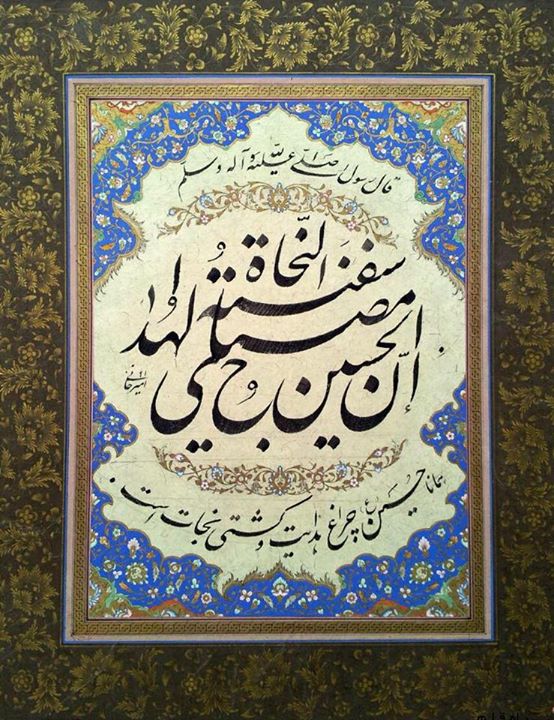 قال رسول الله صلی الله علیه و آله وسلم
إنّ الحسین مصباح الهدی و سفینة النّجاة
امیرخانی
همانا حسین (ع) چراغ هدایت و کشتی نجات است.